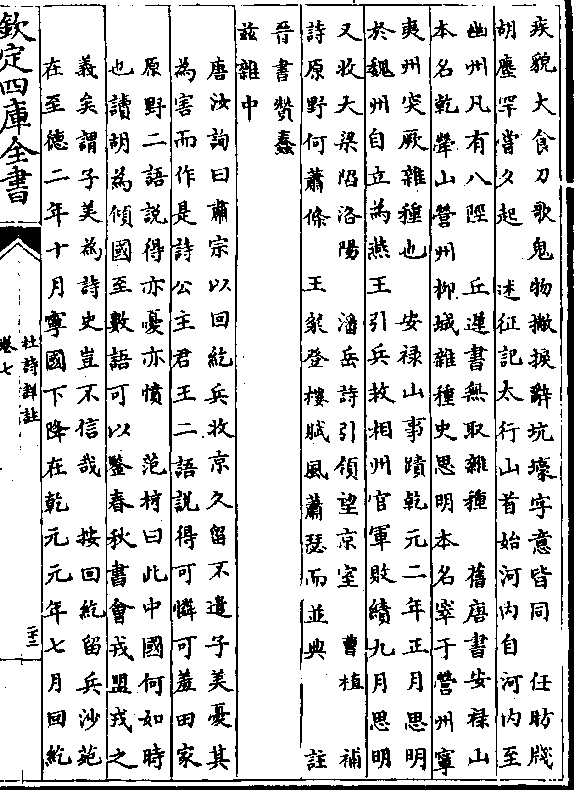 疾貌大食刀歌鬼物撇捩辭坑壕字意皆同　任昉牋
胡塵罕嘗夕起　述征記太行山首始河內自河內至
幽州凡有八陘　丘遲書無取雜種　舊唐書安禄山
本名乾犖山營州柳城雜種史思明本名窣于營州寧
夷州突厥雜種也　安禄山事蹟乾元二年正月思明
於魏州自立為燕王引兵救相州官軍敗績九月思明
又收大梁陷洛陽　潘岳詩引領望京室　曹植　補
詩原野何蕭條　王粲登樓賦風蕭瑟而並興　註
晉書贊蠢
茲雜中
唐汝詢曰肅宗以回紇兵收京久留不遣子美憂其
為害而作是詩公主君王二語說得可憐可羞田家
原野二語說得亦憂亦憤　范梈曰此中國何如時
也讀胡為傾國至數語可以鑒春秋書會戎盟戎之
義矣謂子美為詩史豈不信哉　按回紇留兵沙苑
在至德二年十月寧國下降在乾元元年七月回紇
欽定四庫全書
杜詩詳註
卷七
二十三